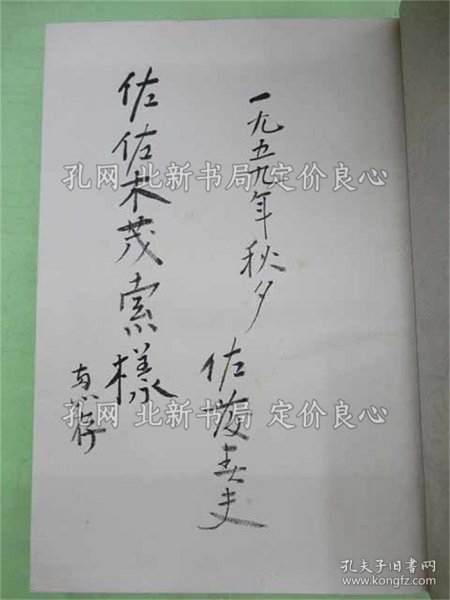 一九五九年秋夕
佐藤春夫
佐佐木茂索樣
惠存
孔网 北新书局 定价良心
孔网 北新书局 定价良心
孔夫子旧书网
www.kongfz.com